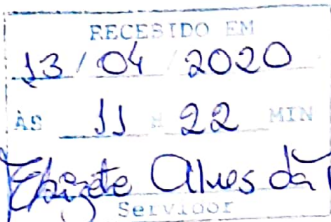 RECEBIDO EM
13 / 04 2020
ÀS 11 H 22 MIN
Alves da
Servidor